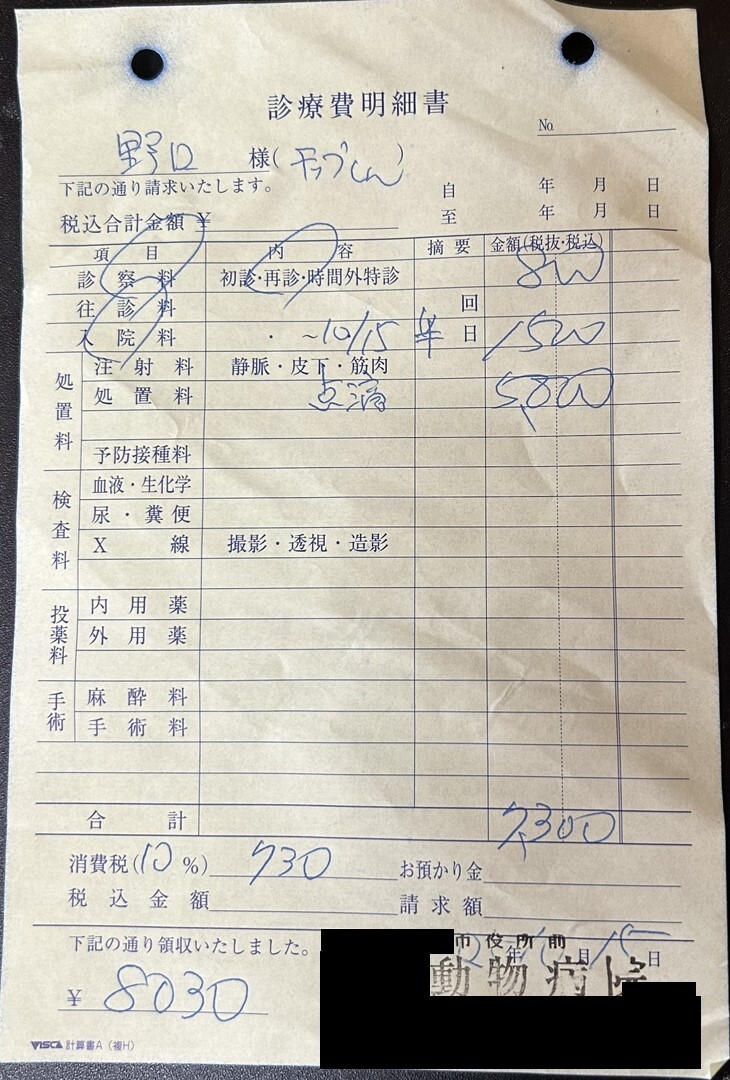 診療費明細書
No.
野口 様(モップくん)
下記の通り請求いたします。
自 年 月 日
至 年 月 日
税込合計金額 ¥
項目 内容 摘要 金額(税抜・税込)
診察料 初診・再診・時間外特診 800
往診料 回
入院料 ・ ~10/15 半日 1500
処置料
注射料 静脈・皮下・筋肉
処置料 点滴 5,000
予防接種料
検査料
血液・生化学
尿・糞便
X線 撮影・透視・造影
投薬料
内用薬
外用薬
手術
麻酔料
手術料
合計 7,300
消費税(10%) 730 お預かり金
税込金額 請求額
下記の通り領収いたしました。
年 月 15日
市役所前
動物病院
¥ 8030
VISCA 計算書A(複H)